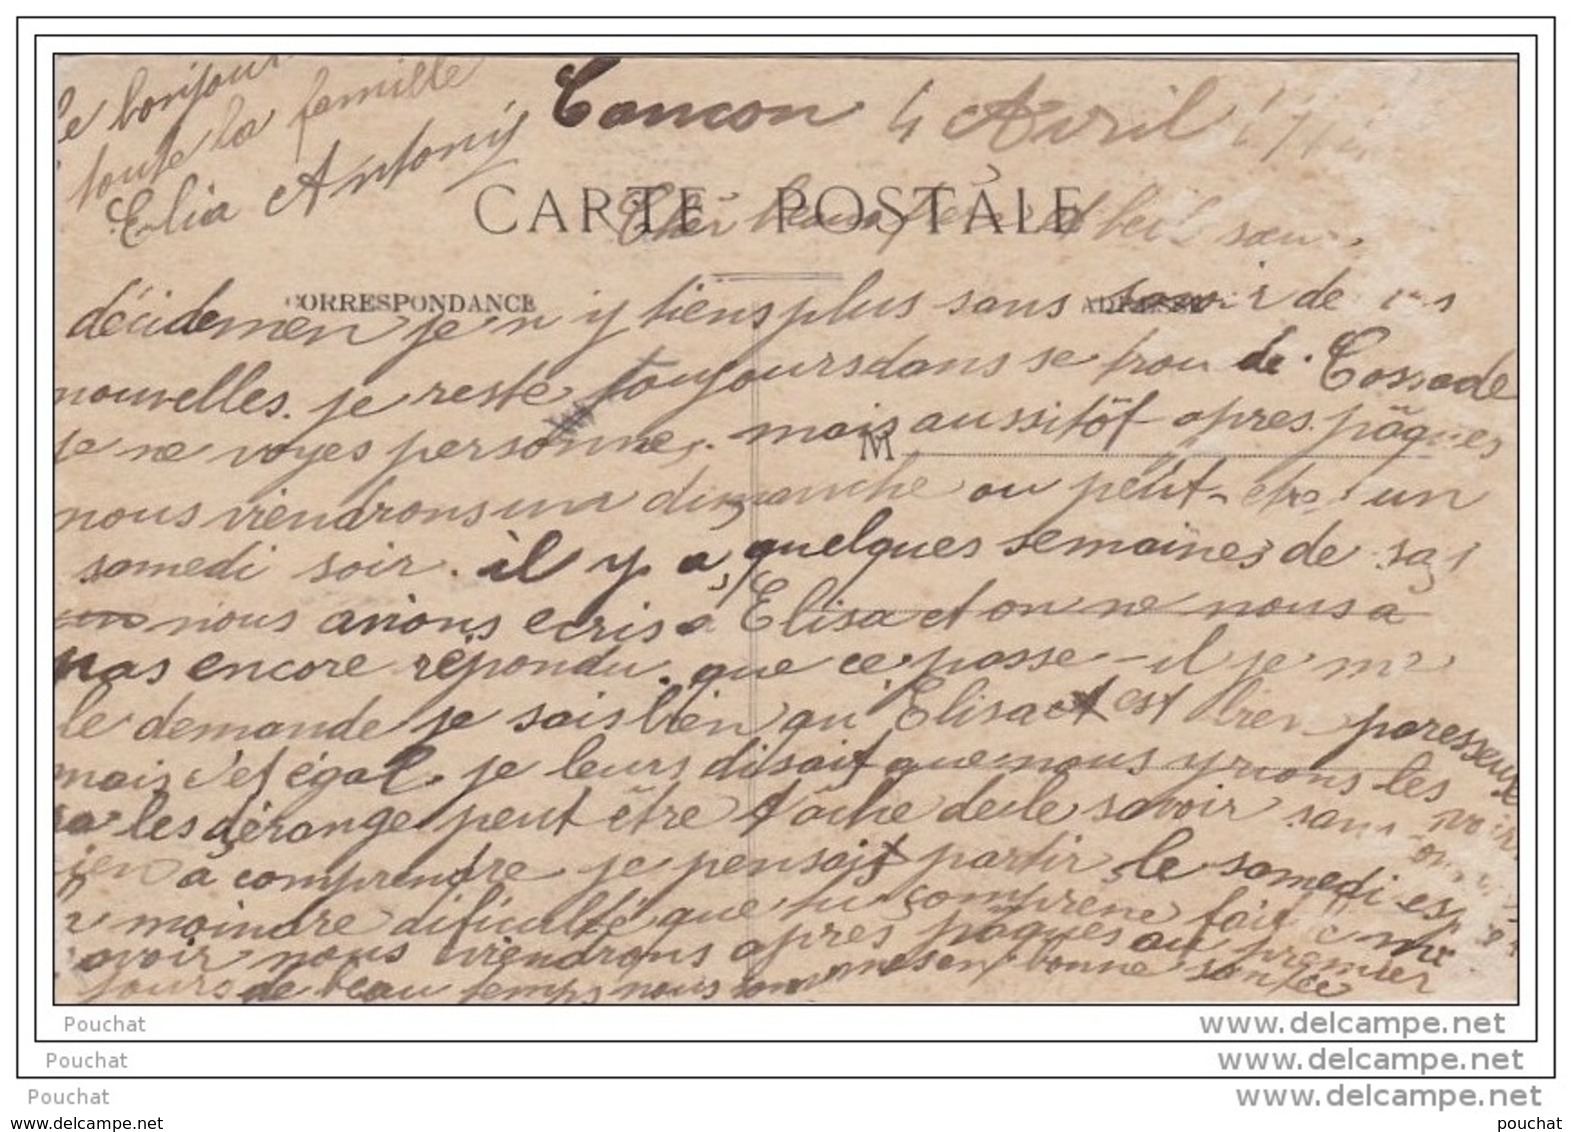 le bonjour
toute la famille
Elia Antony
Cancon 4 Avril
CARTE POSTALE
Cher beau frere et bel sœur
CORRESPONDANCE
ADRESSE
décidemen je n'y tiens plus sans savoir de vos
nouvelles. je reste toujours dans se trou de Cossade
je ne voyes personnes. mais aussitôt apres pâques
M
nous viendrons un dimanche ou peut-etre un
samedi soir. il y a quelques semaines de sa
nous avions ecris a Elisa et on ne nous a
pas encore répondu. que ce passe-il je me
le demande je sais bien qu'Elisa est bien paresseuse
mais c'et égal. je leurs disait que nous yrions les voir
sa les dérange peut être tâche de le savoir sans
rien a comprendre je pensait partir le samedi
moindre dificulté que tu comprene fait me
savoir nous viendrons apres pâques au premier
jours de beau temps nous sommes en bonne santée
Pouchat
www.delcampe.net
Pouchat
www.delcampe.net
Pouchat
www.delcampe.net
www.delcampe.net
pouchat